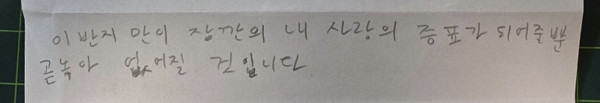 이 반지 만이 잠깐의 내 사랑의 증표가 되어줄뿐
곧녹아 없어질 것입니다